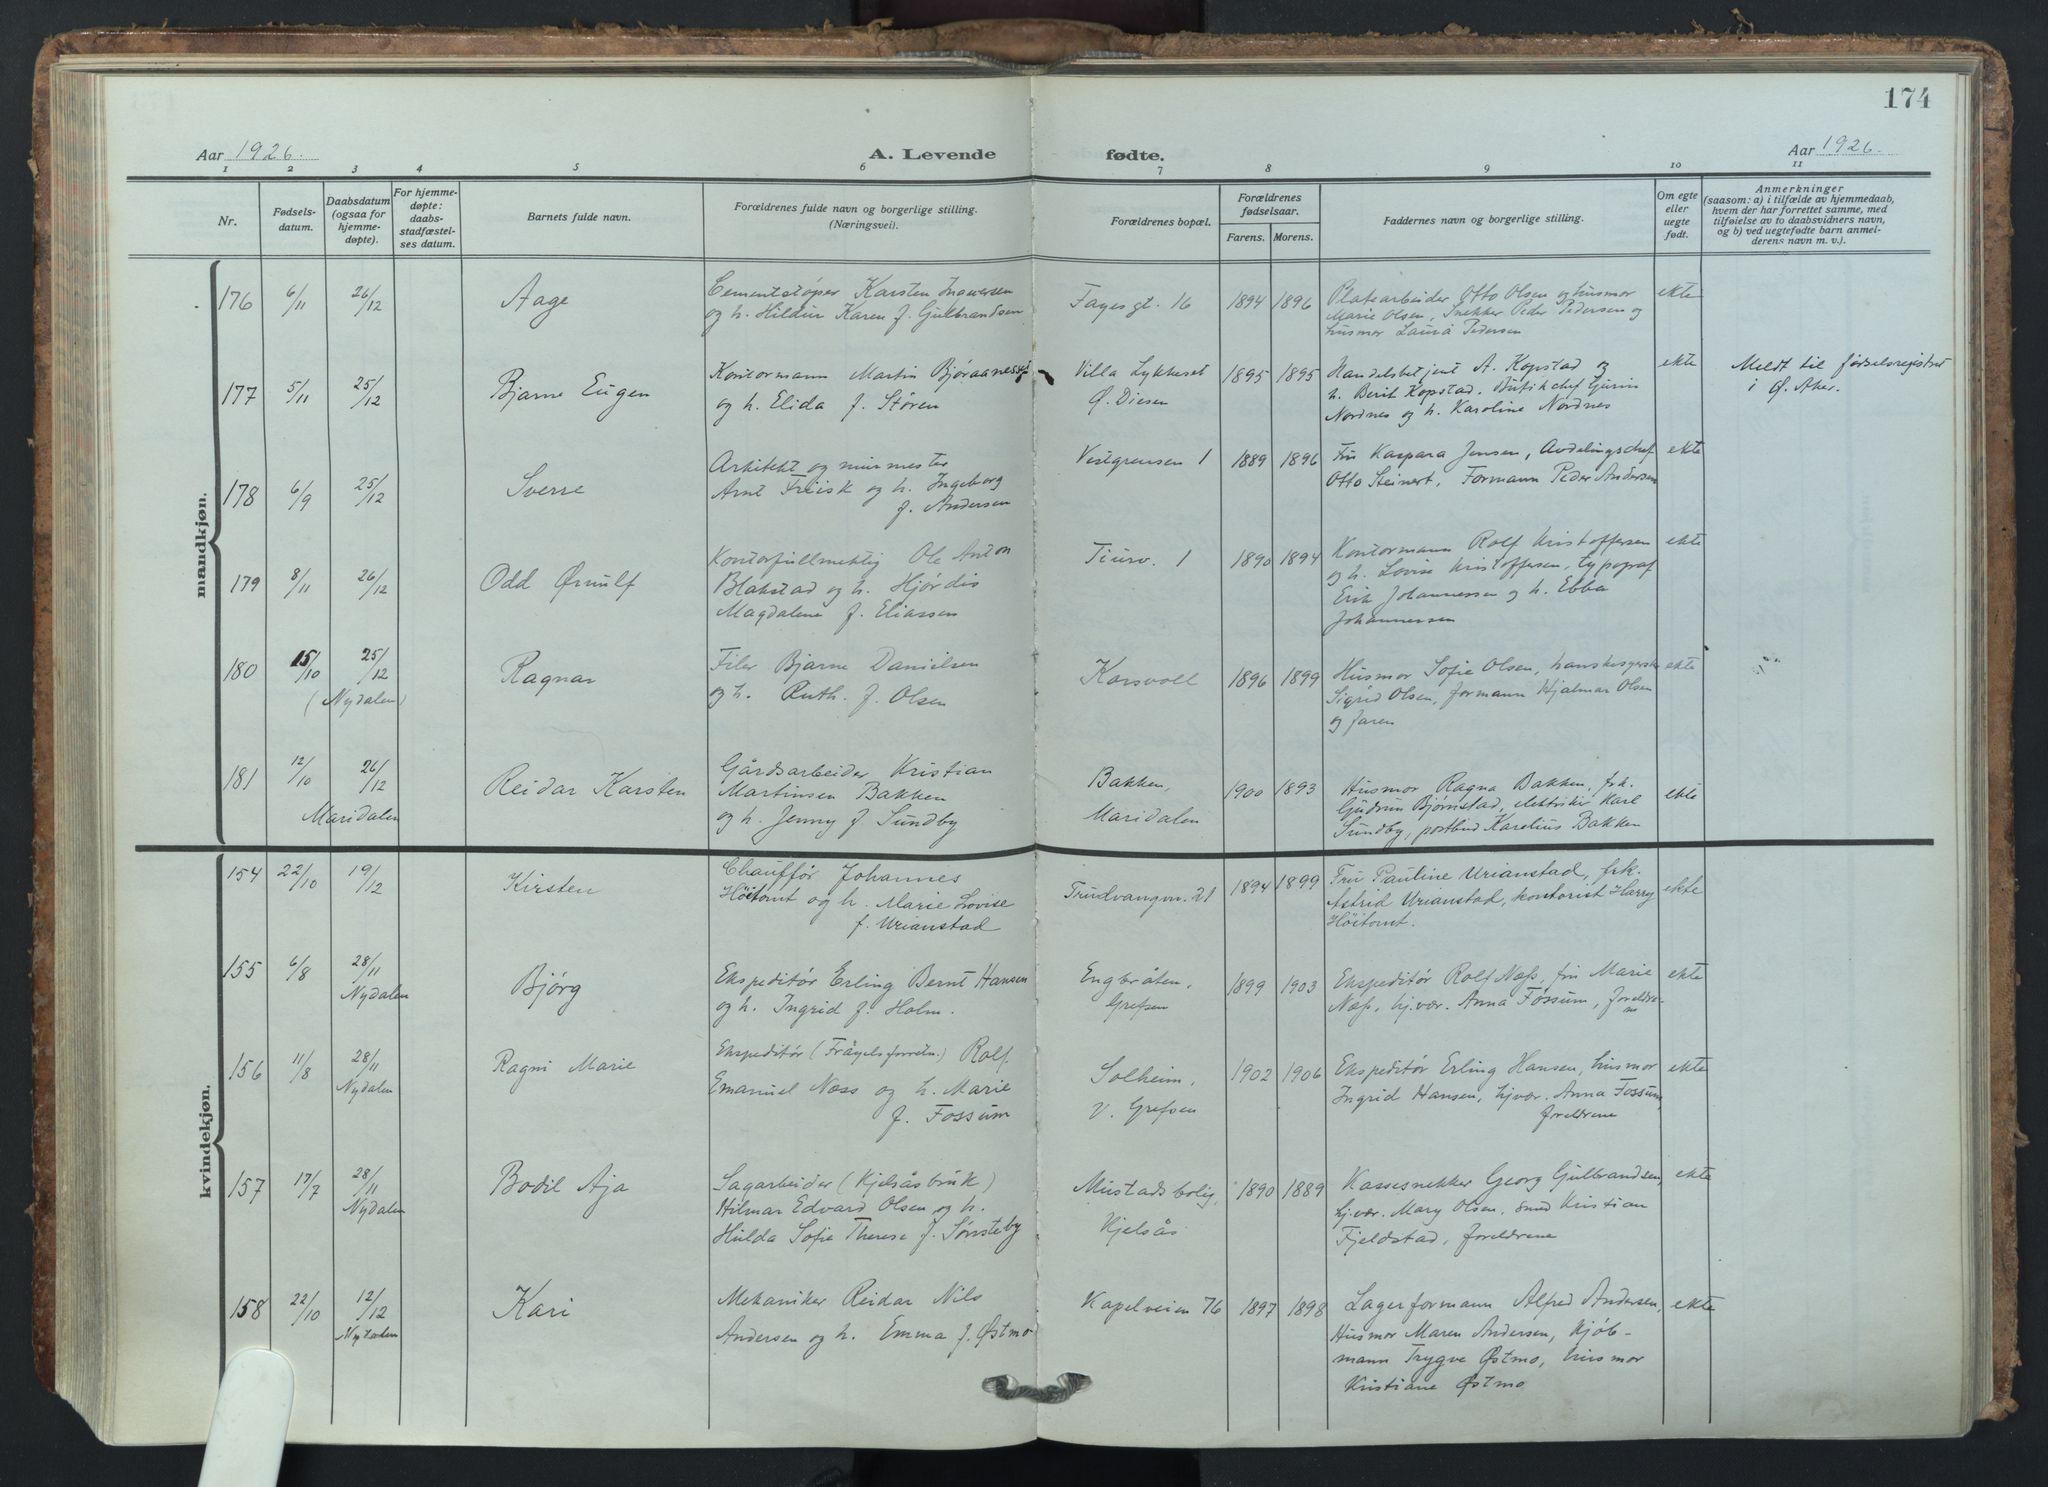 174
Aar 1926.
A. Levende
fødte.
Aar 1926.
1 2 3 4 5 6 7 8 9 10 11
Nr.
Fødsels-
datum.
Daabsdatum
(ogsaa for
hjemme-
døpte).
For hjemme-
døpte:
daabs-
stadfæstel-
ses datum.
Barnets fulde navn.
Forældrenes fulde navn og borgerlige stilling.
(Næringsvei).
Forældrenes bopæl.
Forældrenes
fødselsaar.
Farens. Morens.
Faddernes navn og borgerlige stilling.
Om egte
eller
uegte
født.
Anmerkninger
(saasom: a) i tilfælde av hjemmedaab,
hvem der har forrettet samme, med
tilføielse av to daabsvidners navn,
og b) ved uegtefødte barn anmel-
derens navn m. v.).
mandkjøn.
176 6/11 26/12 Aage
Cementstøper Karsten Ingwersen
og h. Hildur Karen f. Gulbrandsen
Fagesgt. 16 1894 1896
Platearbeider Otto Olsen og husmor
Marie Olsen, Snekker Peder Pedersen og
husmor Laura Pedersen
ekte
177 5/11 25/12 Bjarne Eugen
Kontormann Martin Bjøraanesset
og h. Elida f. Støren
Villa Lykkeset
Ø. Diesen
1895 1895
Handelsbetjent A. Kopstad og
h. Berit Kopstad. Butikchef
Nordnes og h. Karoline Nordnes
ekte
Meldt til fødselsregistret
i Ø. Aker.
178 6/9 25/12 Sverre
Arkitekt og murmester
Arnt Friisk og h. Ingeborg
f. Andersen
Vestgrensen 1 1889 1896
Fru Kaspara Jensen, Avdelingschef
Otto Steinert, Formann Peder Andersen
ekte
179 8/11 26/12 Odd Ørnulf
Kontorfullmektig Ole Anton
Blakstad og h. Hjørdis
Magdalene f. Eliassen
Tiurv. 1 1890 1894
Kontormann Rolf Kristoffersen
og h. Lovise Kristoffersen, typograf
Erik Johannessen og h. Ebba
Johannessen
ekte
180 15/10 25/12 Ragnar
(Nydalen)
Filer Bjarne Danielsen
og h. Ruth. f. Olsen
Korsvoll 1896 1899
Husmor Sofie Olsen, hanskesyerske
Sigrid Olsen, formann Hjalmar Olsen
og faren
ekte
181 12/10 26/12 Reidar Karsten
Maridalen
Gårdsarbeider Kristian
Martinsen Bakken
og h. Jenny f. Sundby
Bakken,
Maridalen
1900 1893
Husmor Ragna Bakken, frk.
Gudrun Bjørnstad, elektriker Karl
Sundby, postbud Karelius Bakken
ekte
kvindekjøn.
154 22/10 19/12 Kirsten
Chauffør Johannes
Höitomt og h. Marie Lovise
f. Urianstad
Trudvangvn. 21 1894 1899
Fru Pauline Urianstad, frk.
Astrid Urianstad, kontorist Harry
Höitomt.
ekte
155 6/8 28/11 Bjørg
Nydalen
Ekspeditør Erling Bernt Hansen
og h. Ingrid f. Holm.
Engbråten,
Grefsen
1899 1903
Ekspeditør Rolf Næss, fru Marie
Næss, hj.vær. Anna Fossum, foreldre-
ne
ekte
156 11/8 28/11 Ragni Marie
Nydalen
Ekspeditør Rolf
Emanuel Næss og h. Marie
f. Fossum
Solheim,
V. Grefsen
1902 1906
Ekspeditør Erling Hansen, husmor
Ingrid Hansen, hj.vær. Anna Fossum,
foreldrene
ekte
157 17/7 28/11 Bodil Aja
Nydalen
Sagarbeider (Kjelsåsbruk)
Hilmar Edvard Olsen og h.
Hulda Sofie Therese f. Sønsteby
Mustadsbolig,
Kjelsås
1890 1889
Kassesnekker Georg Gulbrandsen,
hj.vær. Mary Olsen, smed Kristian
Fjeldstad, foreldrene
ekte
158 22/10 12/12 Kari
Nydalen
Mekaniker Reidar Nils
Andersen og h. Emma f. Østmo
Kapelveien 76 1897 1898
Lagerformann Alfred Andersen,
Husmor Maren Andersen, Kjøb-
mann Trygve Østmo, husmor
Kristiane Østmo
ekte